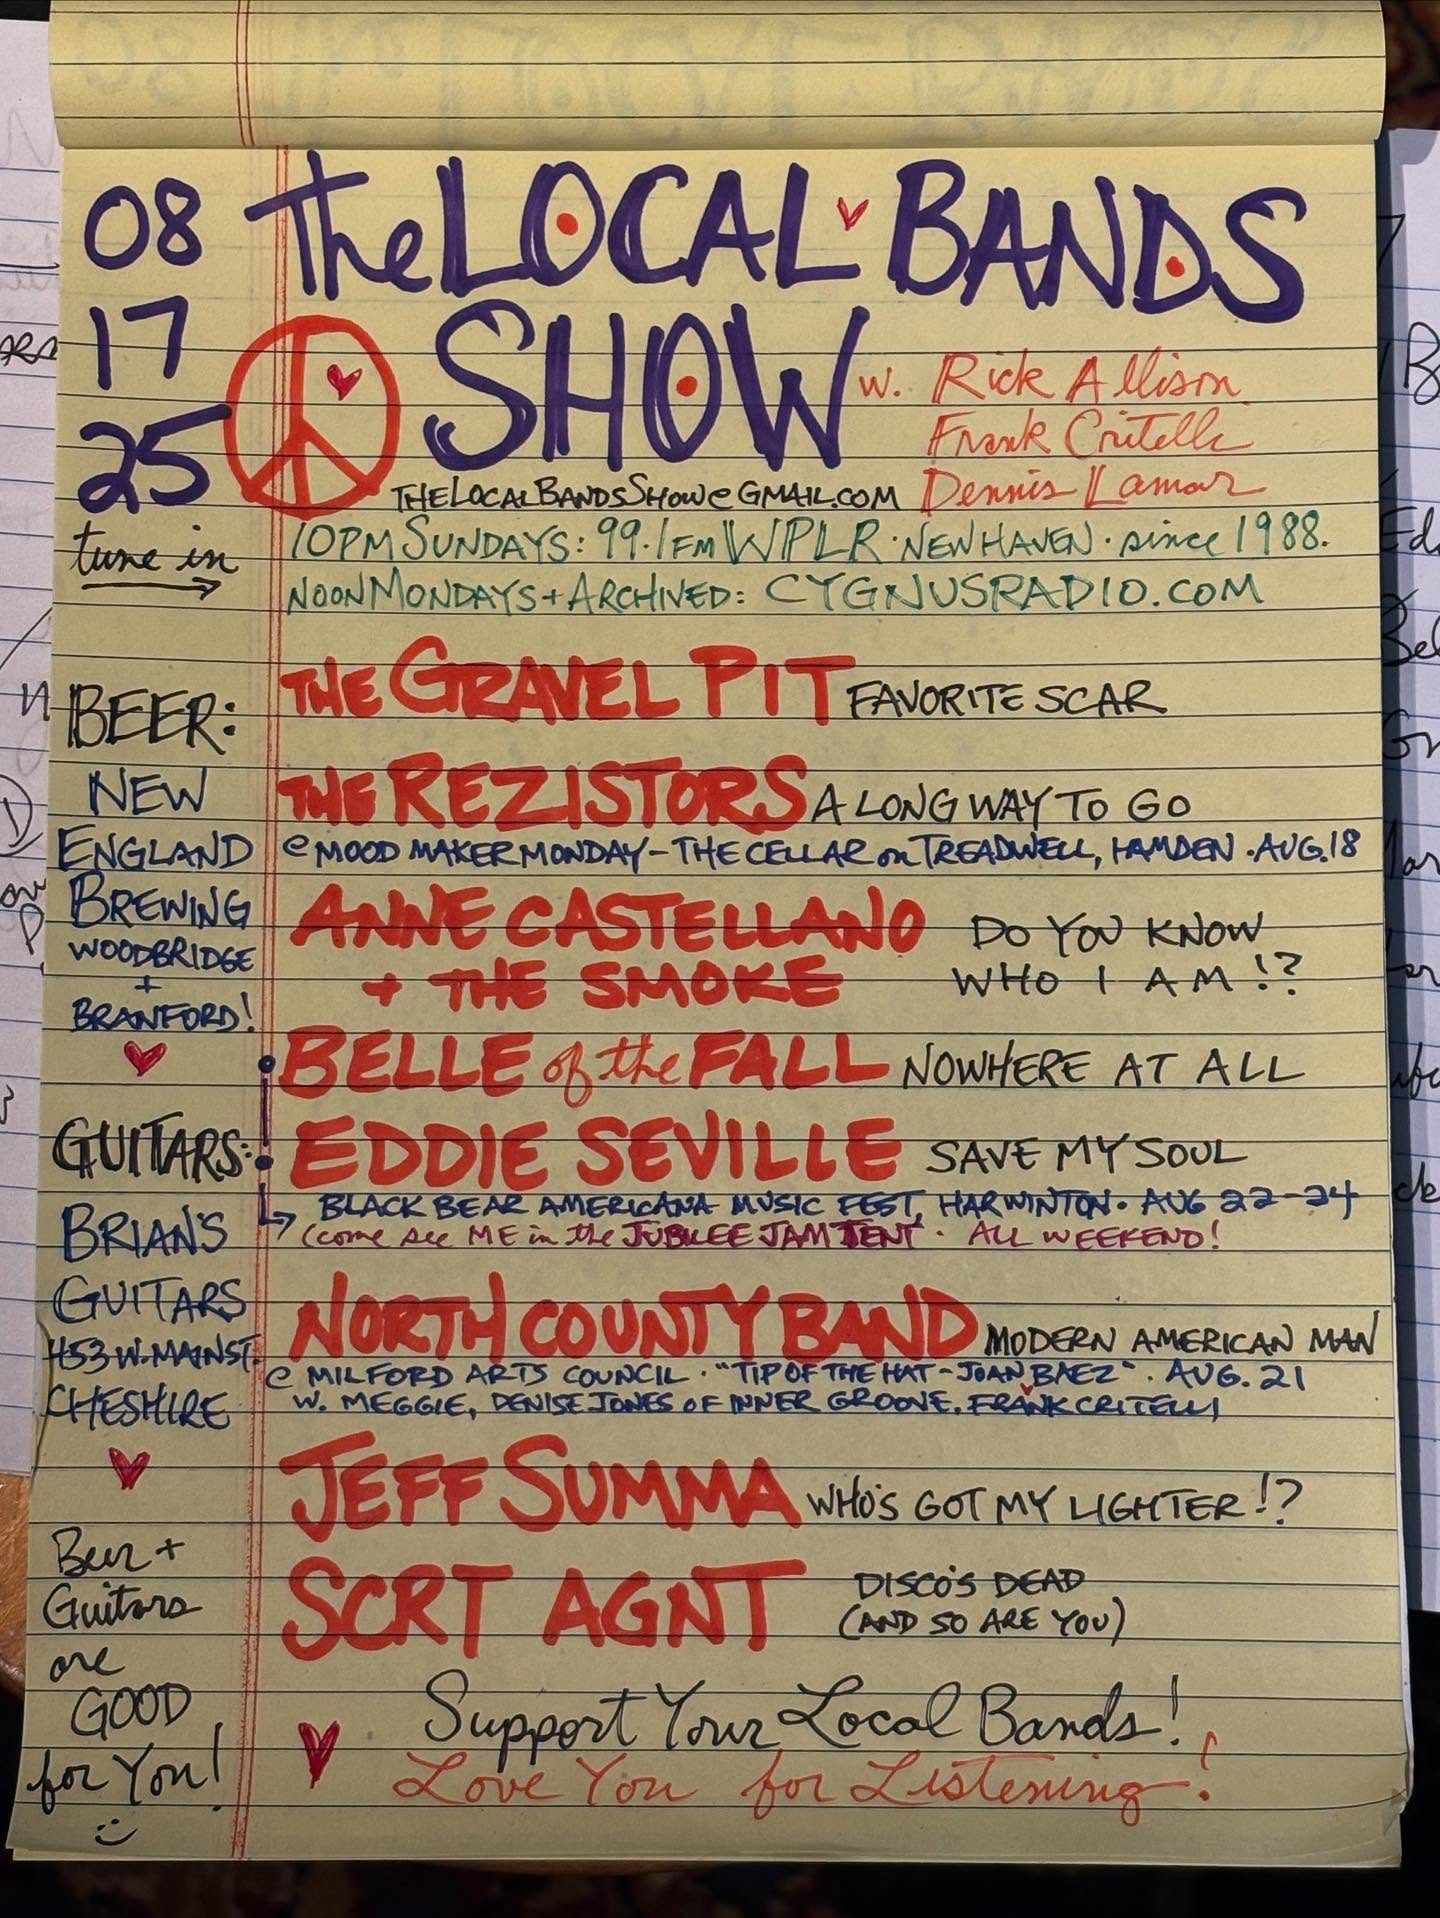 08
17
25
tune in
The LOCAL BANDS
SHOW
w. Rick Allison
Frank Critelli
Dennis Lamar
THELOCALBANDSSHOW@GMAIL.COM
10PM SUNDAYS: 99.1FM WPLR · NEW HAVEN · since 1988.
NOON MONDAYS + ARCHIVED: CYGNUSRADIO.COM
THE GRAVEL PIT FAVORITE SCAR
THE REZISTORS A LONG WAY TO GO
@ MOOD MAKER MONDAY - THE CELLAR on TREADWELL, HAMDEN · AUG. 18
ANNE CASTELLANO DO YOU KNOW
+ THE SMOKE WHO I AM!?
BELLE of the FALL NOWHERE AT ALL
EDDIE SEVILLE SAVE MY SOUL
BLACK BEAR AMERICANA MUSIC FEST, HARWINTON · AUG 22-24
(come see ME in the JUBILEE JAM TENT · ALL WEEKEND!
NORTH COUNTY BAND MODERN AMERICAN MAN
@ MILFORD ARTS COUNCIL · "TIP OF THE HAT - JOAN BAEZ" · AUG. 21
W. MEGGIE, DENISE JONES OF INNER GROOVE, FRANK CRITELLI
JEFF SUMMA WHO'S GOT MY LIGHTER!?
SCRT AGNT DISCO'S DEAD
(AND SO ARE YOU)
Support Your Local Bands!
Love You for Listening!
BEER:
NEW
ENGLAND
BREWING
WOODBRIDGE
+
BRANFORD!
GUITARS:
BRIAN'S
GUITARS
453 W. MAIN ST.
CHESHIRE
Beer +
Guitars
are
GOOD
for You!